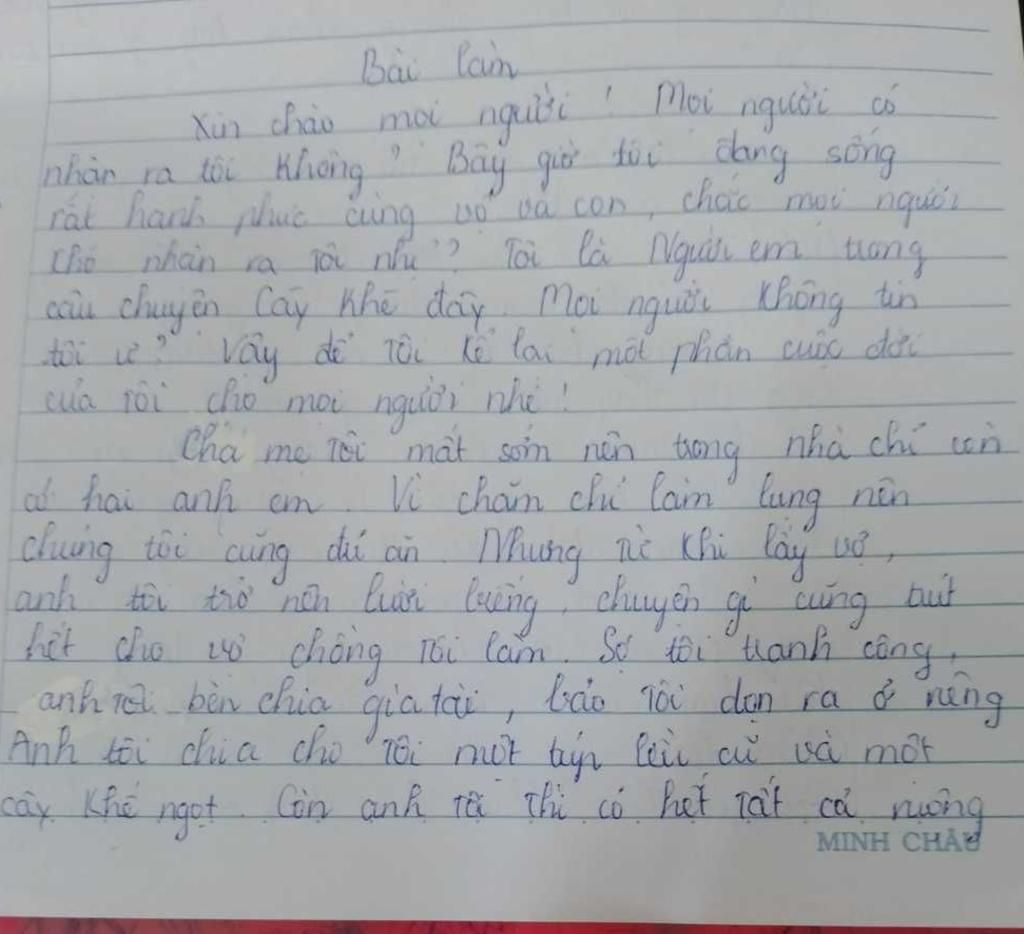 Bài làm
Xin chào mọi người! Mọi người có
nhận ra tôi không? Bây giờ tôi đang sống
rất hạnh phúc cùng vợ và con, chắc mọi người
khó nhận ra tôi nhỉ? Tôi là Người em trong
câu chuyện Cây khế đây. Mọi người không tin
tôi ư? Vậy để tôi kể lại một phần cuộc đời
của tôi cho mọi người nhé!
Cha mẹ tôi mất sớm nên trong nhà chỉ còn
có hai anh em. Vì chăm chỉ làm lụng nên
chúng tôi cũng đủ ăn. Nhưng từ khi lấy vợ,
anh tôi trở nên lười biếng, chuyện gì cũng trút
hết cho vợ chồng tôi làm. Sợ tôi tranh công,
anh tôi bèn chia gia tài, bảo tôi dọn ra ở riêng
Anh tôi chia cho tôi một túp lều cũ và một
cây khế ngọt. Còn anh tôi thì có hết tất cả ruộng
MINH CHÂU